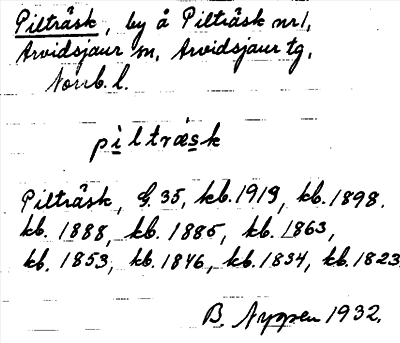 Pilträsk, by å Pilträsk nr 1,
Arvidsjaur sn, Arvidsjaur tg,
Norrb. l.
piltræsk
Pilträsk, G. 35, kb. 1919, kb. 1898.
kb. 1888, kb. 1885, kb. 1863,
kb. 1853, kb. 1846, kb. 1834, kb. 1823
B. Nyppen 1932.